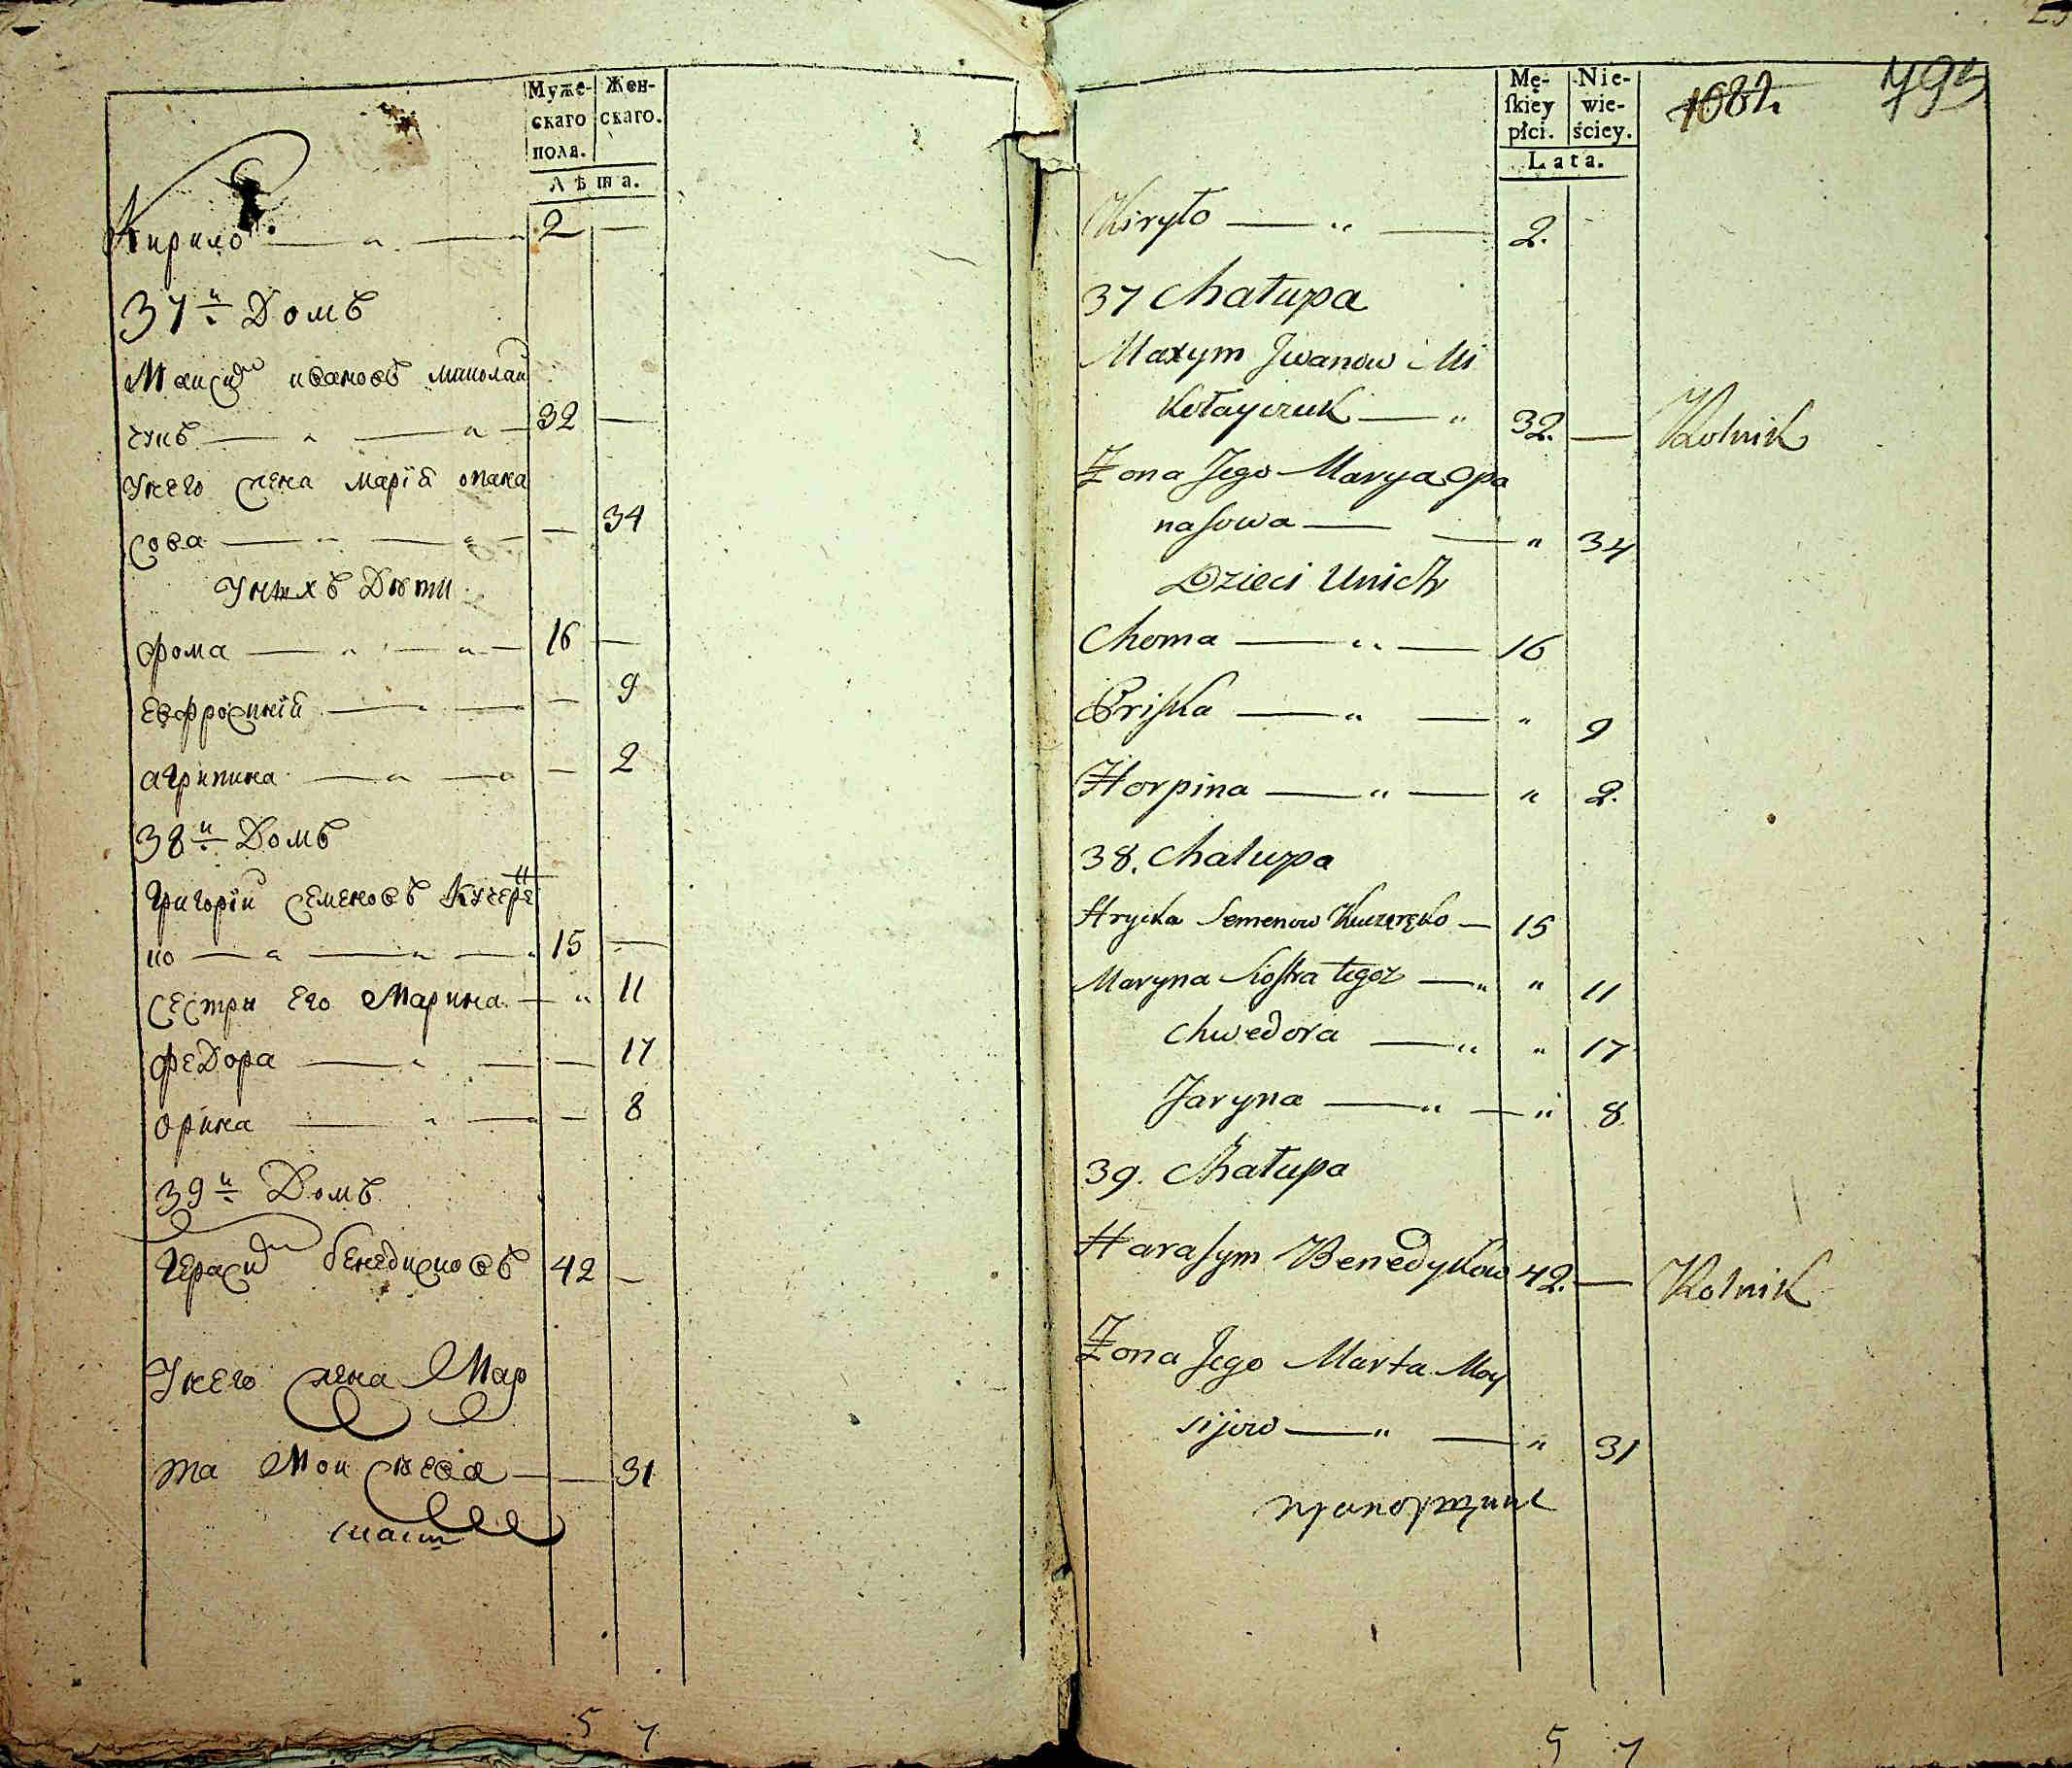 Муже-
скаго
пола.
Жен-
скаго.
Лѣта.
Кирило — „ — „ 2 —
37й Домъ
Максимъ ивановъ миколай
чукъ — „ — „ — 32 —
Унего жена Марія опана
сова — „ — „ — — 34
Унихъ Дѣти
Фома — „ — „ — 16 —
Евфросинія — „ — — 9
агрипина — „ — „ — 2
38й Домъ
Григорій семеновъ Кучере
ко — „ — „ — „ 15 —
сестри его Марина — „ 11
Федора — „ — — 17
орина — „ — — 8
39й Домъ
Герасимъ бенедиковъ 42 —
Унего жена Мар
та Моисѣева — — 31
5 7
Mę-
ſkiey
płci.
Nie-
wie-
ściey.
Lata.
1082.
Kiryło — „ — 2.
37 Chałupa
Maxym Jwanow Mi
kołayczuk — „ 32. — Rolnik
Żona Jego Marya Opa
naſowa — — „ 34
Dzieci Unich
Choma — „ — 16
Priſka — „ — „ 9
Horpina — „ — „ 2.
38. Chalupa
Hrycka Semenow Kuczeręko — 15
Maryna Sioſtra tegoz — „ „ 11
Chwedora — „ „ 17
Jaryna — „ — „ 8
39. Chałupa
Haraſym Benedykow 42. — Rolnik
Żona Jego Marta Moy
sijow — „ — „ 31
прапорщикъ
5 7